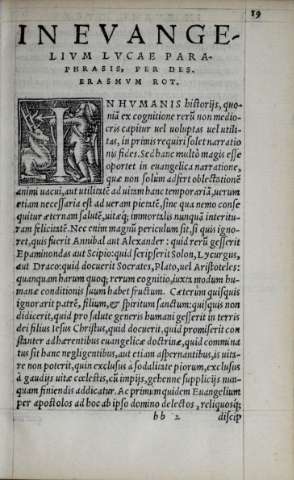 19
IN EVANGE-
LIVM LVCAE PARA-
PHRASIS, PER DES.
ERASMVM ROT.
IN HVMANIS historijs, quo-
niã ex cognitione rerũ non medio-
cris capitur uel uoluptas uel utili-
tas, in primis requiri solet narratio
nis fides. Sed hanc multò magis esse
oportet in euangelica narratione,
quæ non solùm adfert oblectationẽ
animi uacui, aut utilitatẽ ad uitam hanc temporariã, uerum
etiam necessaria est ad ueram pietatẽ, sine qua nemo conse
quitur æternam salutẽ, uitæq; immortalis nunquã interitu-
ram felicitatẽ. Nec enim magnũ periculum sit, si quis igno-
ret, quis fuerit Annibal aut Alexander: quid rerũ gesserit
Epaminondas aut Scipio: quid scripserit Solon, Lycurgus,
aut Draco: quid docuerit Socrates, Plato, uel Aristoteles:
quanquam harum quoq; rerum cognitio, iuxta modum hu-
manæ conditionis suum habet fructum. Cæterùm quisquis
ignorarit patrẽ, filium, & spiritum sanctum: quisquis non
didicerit, quid pro salute generis humani gesserit in terris
dei filius Iesus Christus, quid docuerit, quid promiserit con
stanter adhærentibus euangelicæ doctrinæ, quid commina
tus sit hanc negligentibus, aut etiam aspernantibus, is uita-
re non poterit, quin exclusus à sodalitate piorum, exclusus
à gaudijs uitæ cœlestis, cũ impijs, gehennæ supplicijs nun-
quam finiendis addicatur. Ac primum quidem Euangelium
per apostolos ad hoc ab ipso domino delectos, reliquosq;
bb 2 discip